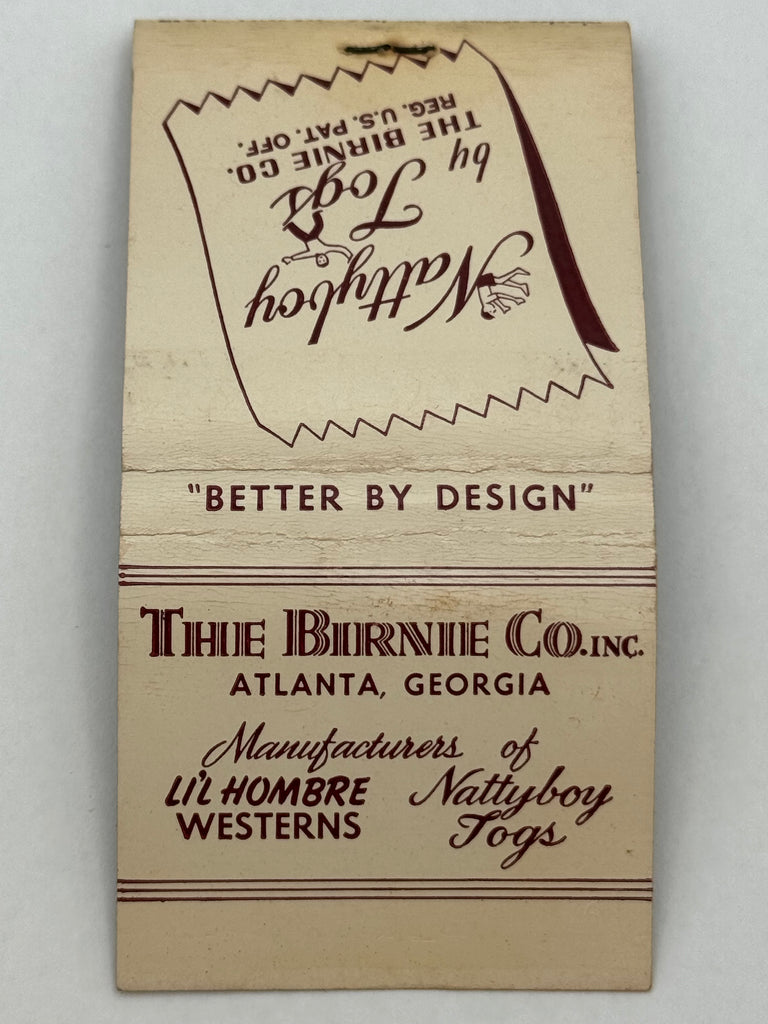 Nattyboy
Togs
by
THE BIRNIE CO.
REG. U.S. PAT. OFF.
"BETTER BY DESIGN"
THE BIRNIE CO. INC.
ATLANTA, GEORGIA
Manufacturers of
LI'L HOMBRE
WESTERNS
Nattyboy
Togs